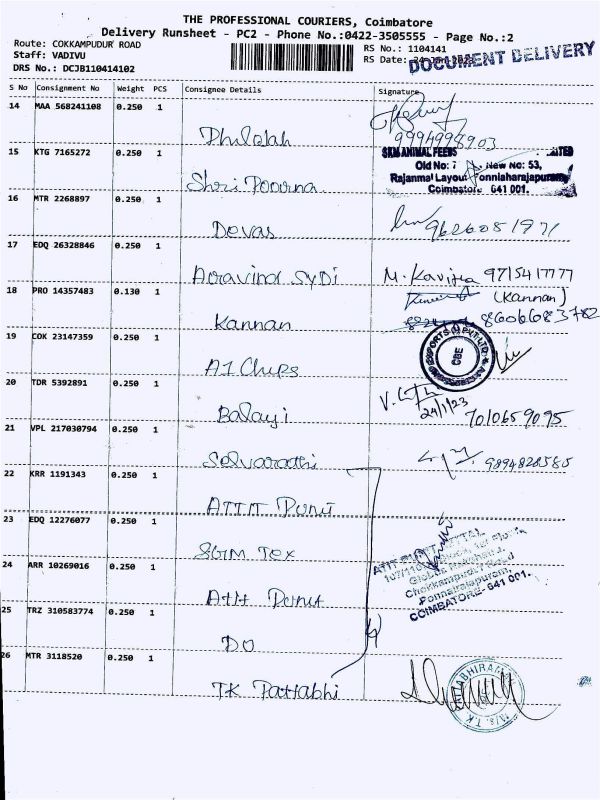 THE PROFESSIONAL COURIERS, Coimbatore
Delivery Runsheet - PC2 - Phone No.:0422-3505555 - Page No.:2
Route: COKKAMPUDUR ROAD
RS No.: 1104141
Staff: VADIVU
RS Date:
DOCUMENT DELIVERY
DRS No.: DCJB110414102
S No Consignment No Weight PCS Consignee Details Signature
14 MAA 568241108 0.250 1
9994998903
15 KTG 7165272 0.250 1
SKM ANIMAL FEEDS
Old No: New No: 53,
Rajanmal Layout Ponniaharajapuram
Coimbatore 641 001.
Shri Poorna
16 MTR 2268897 0.250 1
Devas 9626081971
17 EDQ 26328846 0.250 1
Aravind M. Kavitha 9715417777
18 PRO 14357483 0.130 1
(Kannan)
Kannan 8606683782
19 COK 23147359 0.250 1
EXPORTS (I) PVT LTD
CBE
A1 Chips
20 TDR 5392891 0.250 1
24/1/23
Balaji 7010659095
21 VPL 217030794 0.250 1
9894828580
22 KRR 1191343 0.250 1
23 EDQ 12276077 0.250 1
Tex
24 ARR 10269016 0.250 1
Chokkampudur Road
Ponnaiarajapuram,
COIMBATORE- 641 001.
25 TRZ 310583774 0.250 1
DO
26 MTR 3118520 0.250 1
TK Pattabhi
M/s. T.K.